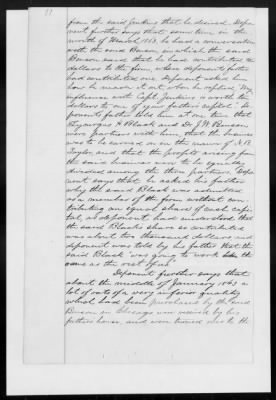 from the said Jenkins that he desired. Depo-
nent further says that some time in the
month of March 1863 he had a conversation
with the said Benson in which the said
Benson said that he had contributed
dollars to the firm, where deponents father
had contributed one. Deponent asked him
how he made it out when he replied "My
influence with Capt Jenkins is worth two
dollars to one of your fathers capital". De-
ponents father told him at one time that
H Black and Dr J M Benson
were partners with him, that the business
was to be carried on in the name of J. B.
Taylor, and that the profits arising from
the said business were to be equally
divided among the three partners. Depo-
nent says that he asked his father
why the said Black was admitted
as a member of the firm without con-
tributing an equal share of said capi-
tal, as deponent had understood that
the said Blacks share so contributed
was about two thousand dollars and
deponent was told by his father that the
said Black "was going to work like the
same as the rest of us"
Deponent further says that
about the middle of January 1863 a
lot of oats of a very inferior quality
which had been purchased by the said
Benson in Chicago was received by his
fathers house, and were turned over to the